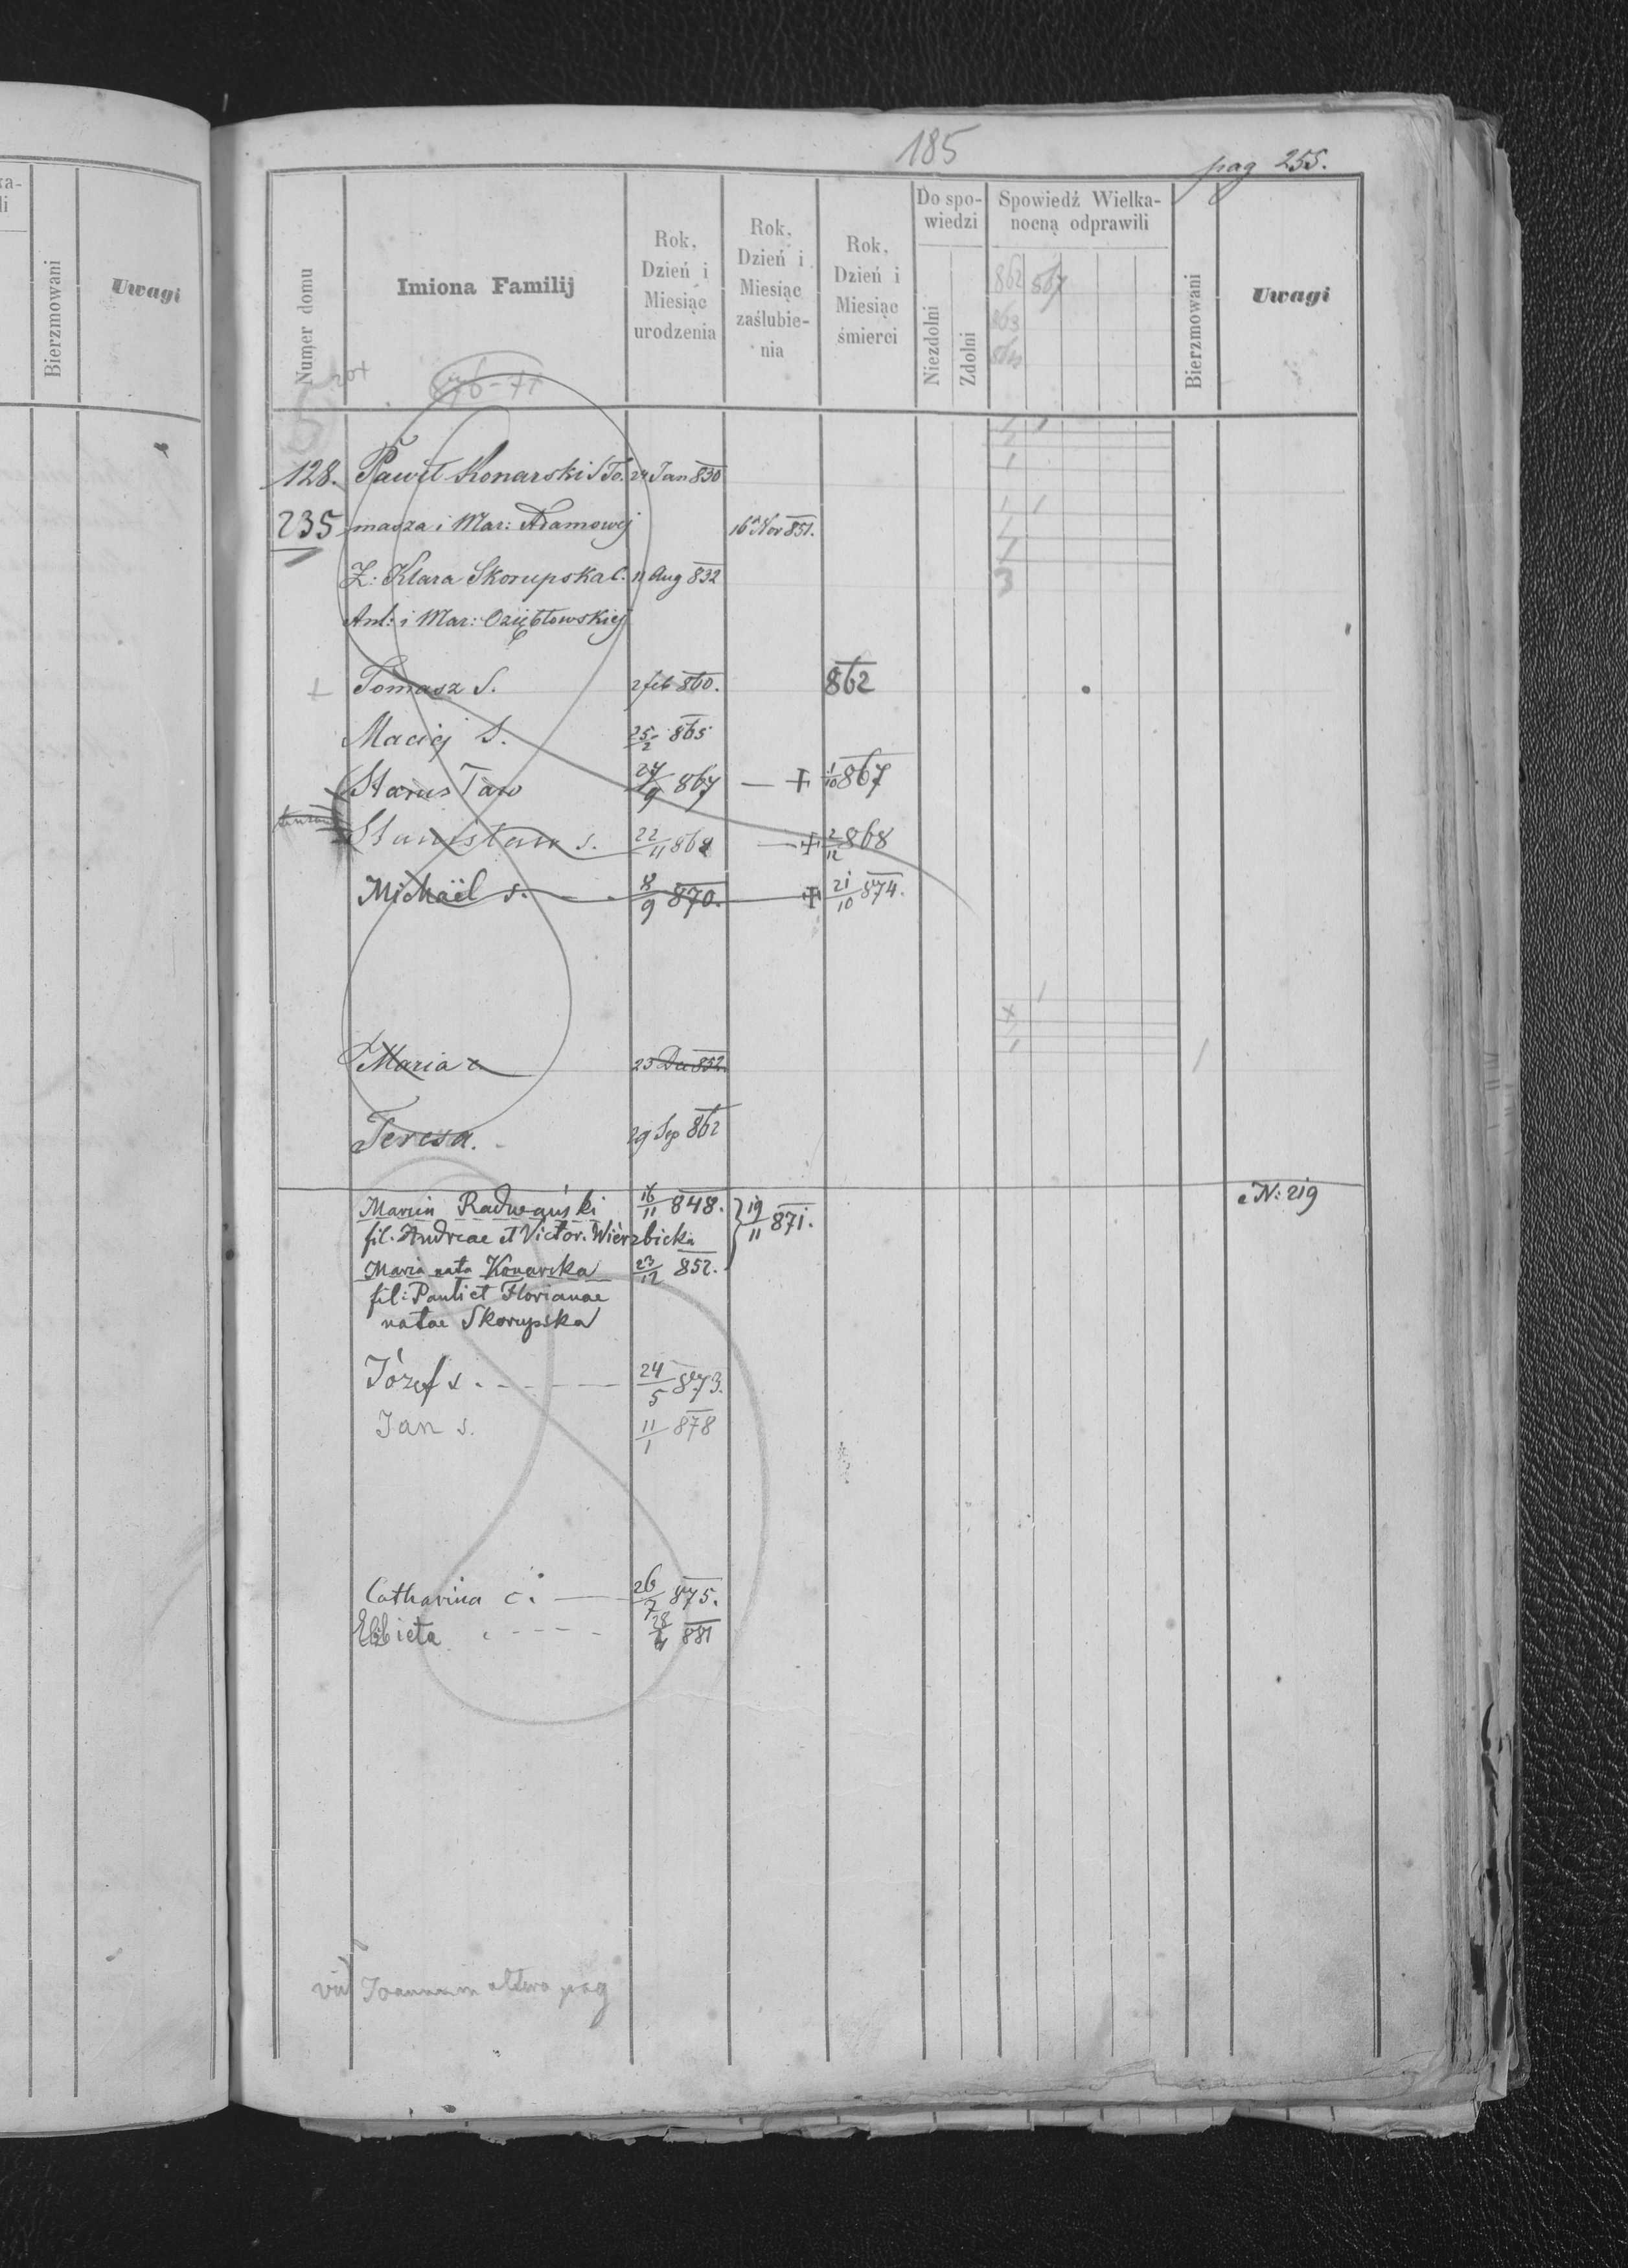 185
pag 255.
Numer domu
Imiona Familij
Rok, Dzień i Miesiąc urodzenia
Rok, Dzień i Miesiąc zaślubie-nia
Rok, Dzień i Miesiąc śmierci
Do spo-wiedzi
Niezdolni
Zdolni
Spowiedź Wielka-nocną odprawili
862 867
863
Bierzmowani
Uwagi
Bierzmowani
Uwagi
128. Paweł Konarski S To. 24 Jan 830
235 masza i Mar: Adamowej 16 Nov 851.
Ż: Klara Skorupska C. 11 Aug 832
Ant: i Mar: Oziębłowskiej
+ Tomasz S. 2 feb 860. 862
Maciej S. 25/2 865
Stanis Taw 27/9 867 — + 1/10 867
Stanisław s. 22/11 868 — + 2/12 868
Michaël s. — 8/9 870. — + 21/10 874.
Maria c. 23 Dec 852.
Teresa. 29 Sep 862
Marcin Radwański 16/11 848. } 19/11 871. e N: 219
fil. Andreae et Victor. Wierzbicka
Maria nata Konarska 23/12 852.
fil: Pauli et Florianae
natae Skorupska
Józef s. - - - - 24/5 873.
Jan s. 11/1 878
Catharina c. — 26/7 875.
Elżbieta - - - - 28/4 881
Joannam altera pag